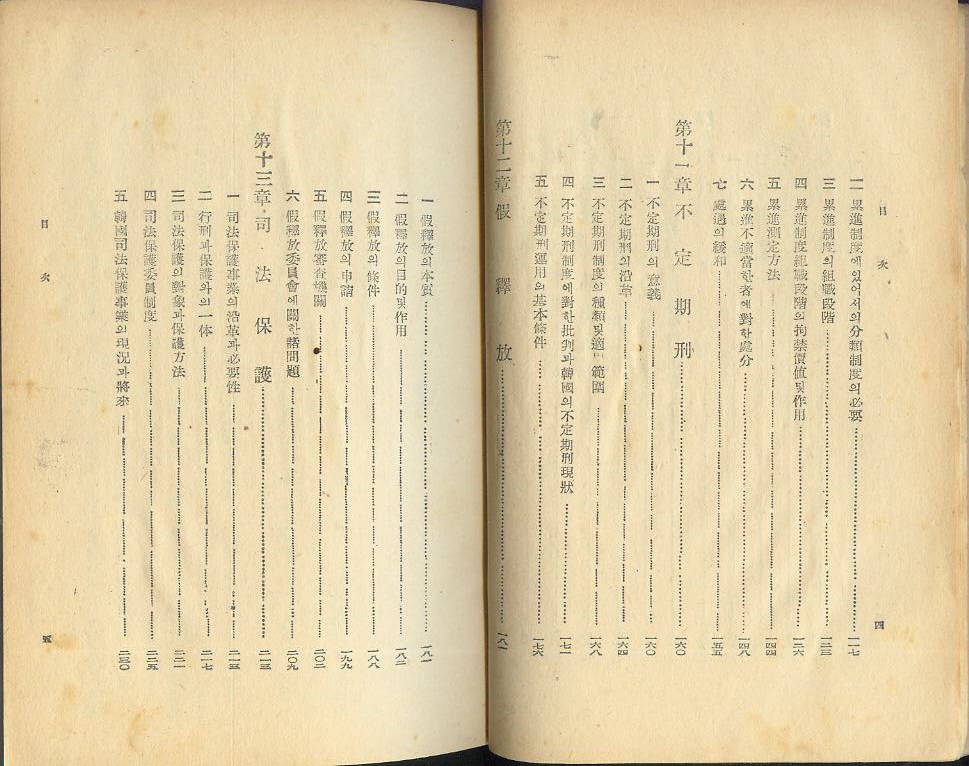 目 次
四
二 累進制度에있어서의分類制度의必要 一一七
三 累進制度의組職段階 一二三
四 累進制度組職段階의拘禁價値및作用 一二六
五 累進測定方法 一四四
六 累進不適當한者에對한處分 一四八
七 處遇의緩和 一五五
第十一章 不定期刑 一六〇
一 不定期刑의意義 一六〇
二 不定期刑의沿革 一六四
三 不定期刑制度의種類및適 範圍 一六八
四 不定期刑制度에對한批判과韓國의不定期刑現狀 一七一
五 不定期刑運用의基本條件 一七六
第十二章 假釋放 一八一
一 假釋放의本質 一八一
二 假釋放의目的및作用 一八二
三 假釋放의條件 一八八
四 假釋放의申請 一九九
五 假釋放審査機關 二〇二
六 假釋放委員會에關한諸問題 二〇九
第十三章 司法保護 二一三
一 司法保護事業의沿革과必要性 二一三
二 行刑과保護와의一体 二一七
三 司法保護의對象과保護方法 二二一
四 司法保護委員制度 二二五
五 韓國司法保護事業의現況과將來 二三〇
目 次
五